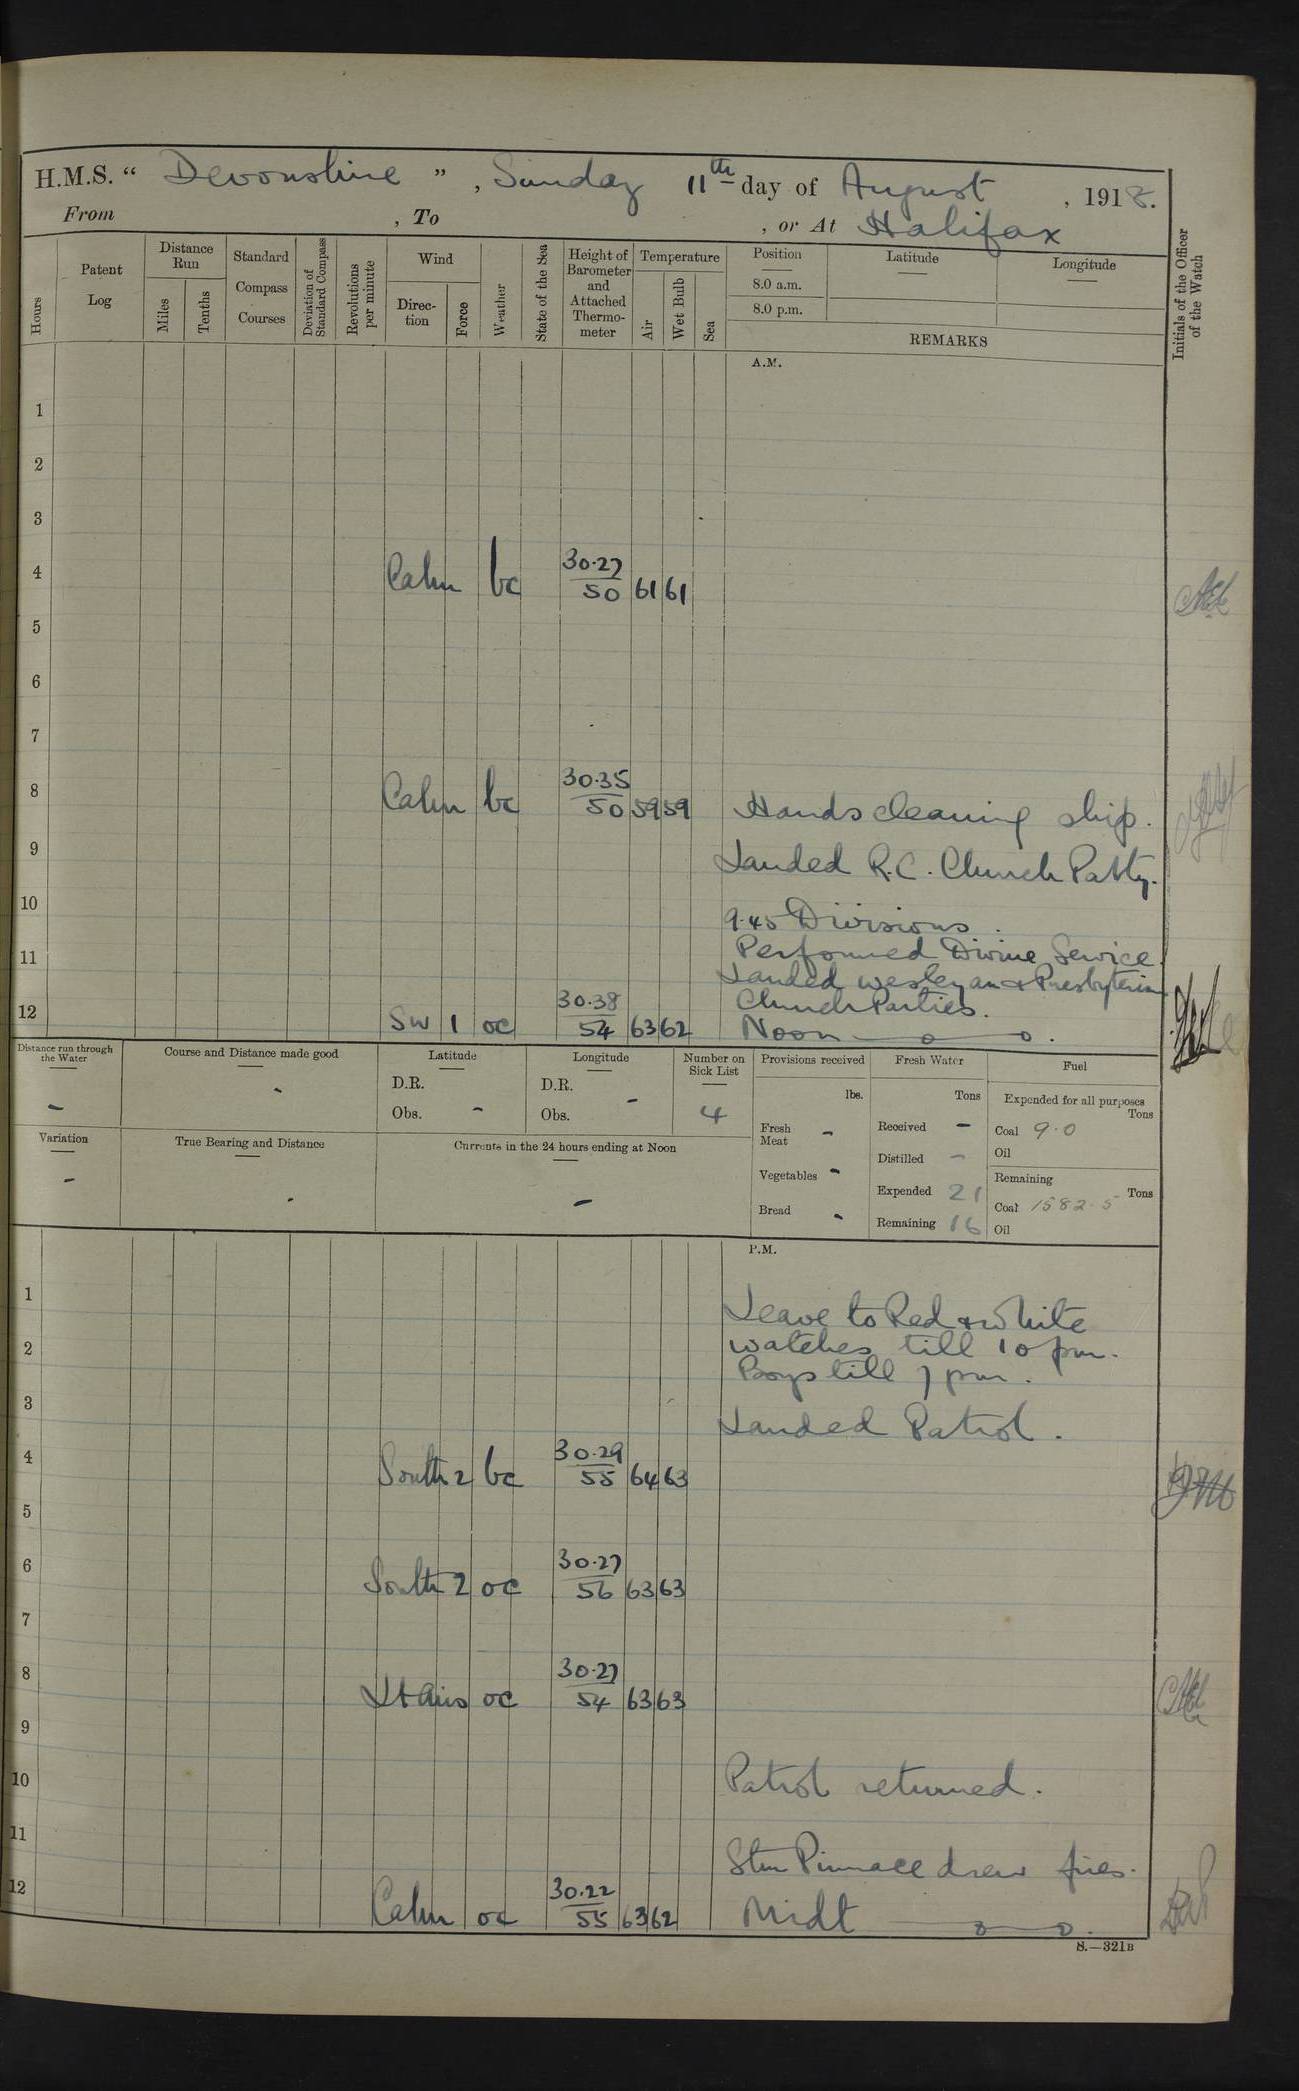 H.M.S. " Devonshire " , Sunday 11th day of August , 1918.
From , To , or At Halifax
Hours
Patent Log
Distance Run
Miles
Tenths
Standard Compass Courses
Deviation of Standard Compass
Revolutions per minute
Wind
Direc- tion
Force
Weather
State of the Sea
Height of Barometer and Attached Thermo- meter
Temperature
Air
Wet Bulb
Sea
Position
8.0 a.m.
8.0 p.m.
Latitude
Longitude
REMARKS
Initials of the Officer of the Watch
A.M.
1
2
3
4 Calm bc 30.27/50 61 61
5
6
7
8 Calm bc 30.35/50 59 59 Hands cleaning ship.
9 Landed R.C. Church Party.
10 9.45 Divisions.
11 Performed Divine Service
Landed Wesleyan & Presbyterian
Church Parties.
12 SW 1 oc 30.38/54 63 62 Noon
Distance run through the Water
-
Course and Distance made good
-
Latitude
D.R.
Obs. -
Longitude
D.R.
Obs. -
Number on Sick List
4
Provisions received
lbs.
Fresh Meat -
Vegetables -
Bread -
Fresh Water
Tons
Received -
Distilled -
Expended 21
Remaining 16
Fuel
Expended for all purposes
Tons
Coal 9.0
Oil
Remaining
Tons
Coal 1582.5
Oil
Variation
-
True Bearing and Distance
-
Currents in the 24 hours ending at Noon
-
P.M.
1 Leave to Red & White
2 watches till 10 pm.
Boys till 7 pm.
3 Landed Patrol.
4 South 2 bc 30.29/55 64 63
5
6 South 2 oc 30.27/56 63 63
7
8 Lt Airs oc 30.27/54 63 63
9
10 Patrol returned.
11 Stm Pinnace drew fires.
12 Calm oc 30.22/55 63 62 Midt
S.—321B